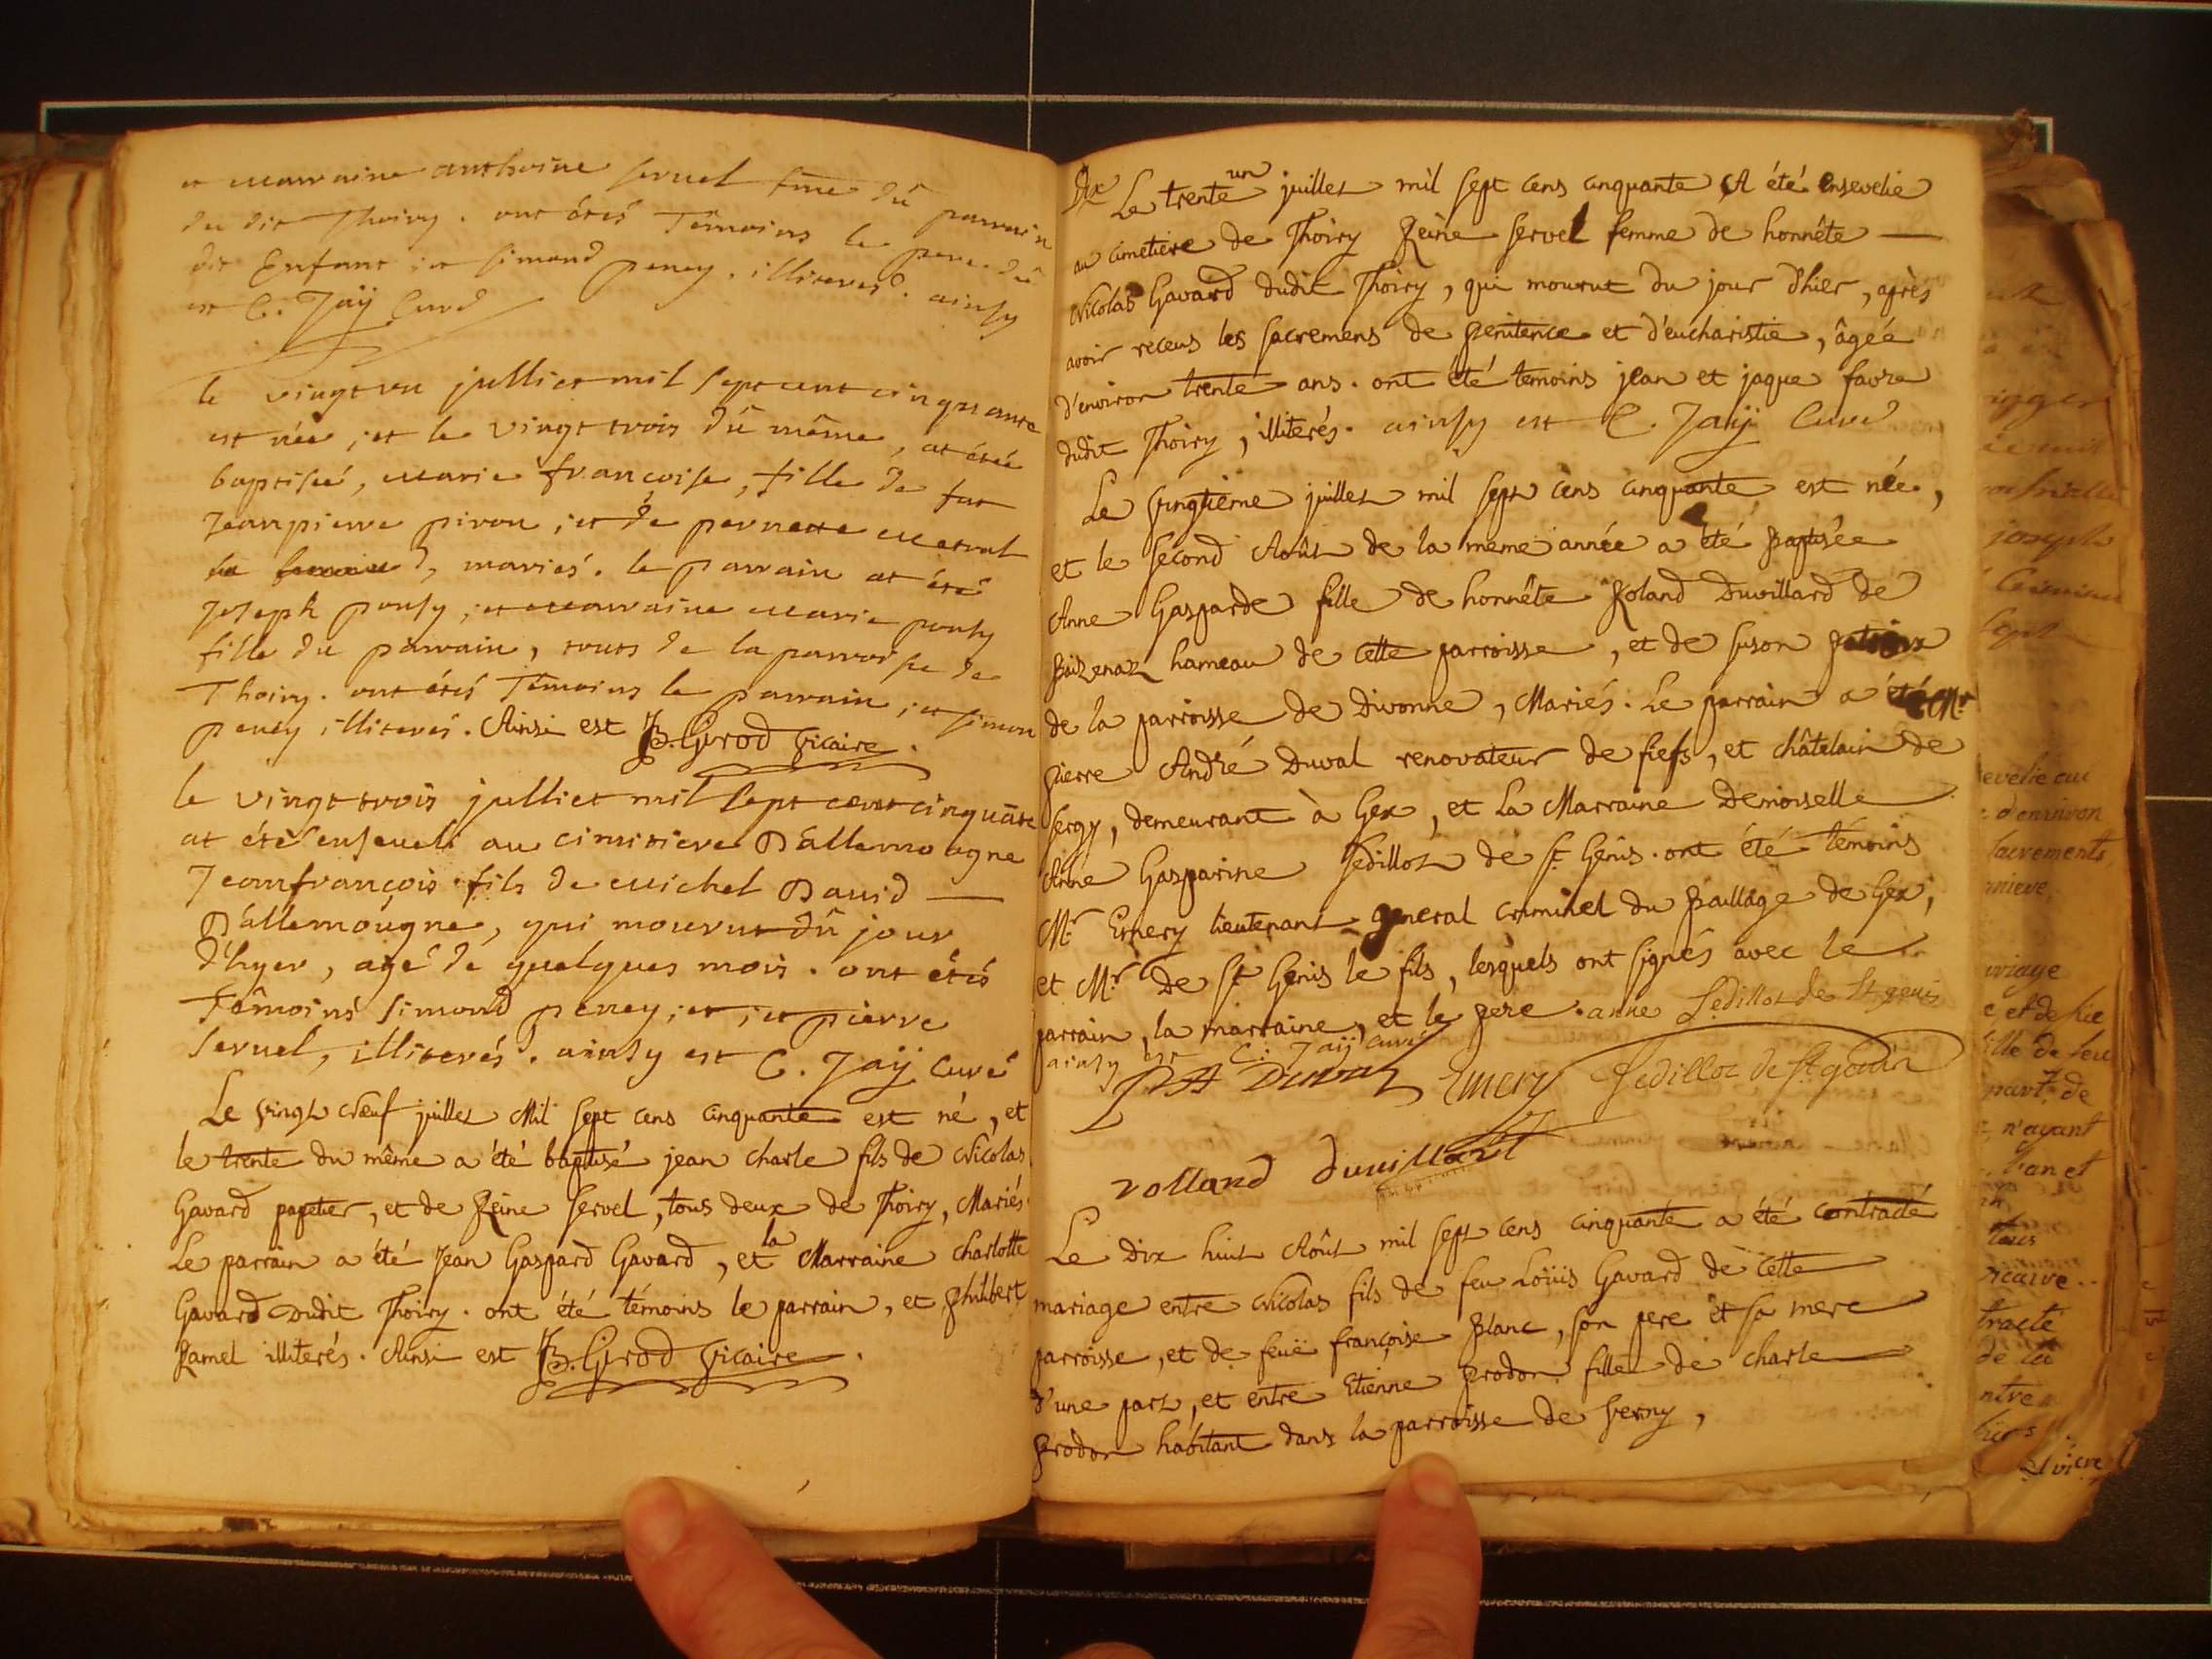 et marraine anthoine servel fme dû parrain
du dit Thoiry. ont étés Témoins le pere du
dit Enfant ; et simond peney. illiterés. ainsy
est C. Jaÿ Curé
le vingt un julliet mil sept cent cinquante
est née ; et le vingt trois dû même, at étée
baptisée, marie françoise, fille de fut
Jean pierre piron ; et de pernette
mariés. le parrain at été
Joseph pousy ; et marraine marie pousy
fille du parrain, tous de la parroisse de
Thoiry. ont étés Témoins le parrain ; et simon
peney illiterés. Ainsi est JB. Girod Vicaire.
le vingt trois julliet mil sept cent cinquāte
at été enseveli au cimitiere D'allemoagne
Jeanfrançois fils de michel David
D'allemougne, qui mourut dû jour
d'hyer, agé de quelques mois. ont étés
Témoins simond peney ; et ; et pierre
servel, illiterés. ainsy est C. Jaÿ Curé
Le vingt Neuf juillet Mil sept cens cinquante est né, et
le trente du même a été baptisé jean charle fils de Nicolas
Gavard papetier, et de Reine servel, tous deux de Thoiry, Mariés.
Le parrain a été Jean Gaspard Gavard, et la Marraine charlotte
Gavard Dudit Thoiry. ont été témoins le parrain, et philibert
Ramel illiterés. Ainsi est JB. Girod Vicaire.
Le trente un juillet mil sept cens cinquante A été ensevelie
au cimetiere de Thoiry Reine servel femme de honnête
Nicolas Gavard dudit Thoiry, qui mourut du jour d'hier, après
avoir receus les sacremens de penitence et d'eucharistie, âgée
d'environ trente ans. ont été temoins jean et jaque favre
dudit Thoiry, illiterés. ainsy est C. Jaÿ Curé
Le vingtième juillet mil sept cens cinquante est née,
et le second Août de la meme année a été Baptisée
Anne Gasparde fille de honnête Roland Duvillard de
hameau de cette parroisse, et de suson
de la parroisse de Divonne, Mariés. Le parrain a été Mr
pierre André Duval renovateur de fiefs, et châtelain de
sergy, demeurant à Gex, et La Marraine Demoiselle
Anne Gasparine sedillot de st Genis. ont été témoins
Mr Emery lieutenant general criminel du Baillage de Gex,
et Mr De st Genis le fils, lesquels ont signés avec le
parrain, la marraine, et le pere. anne Sedillot de St genis
ainsy est C. Jaÿ curé
PA Duval Emery Sedillot de St genis
rolland duvillard
Le Dix huit Août mil sept cens cinquante a été contracté
mariage entre Nicolas fils de feu Loüis Gavard de cette
parroisse, et de feuë françoise Blanc, son pere et sa mere
d'une part, et entre Etienne prodon fille de charle
prodon habitant dans la parroisse de Verny,